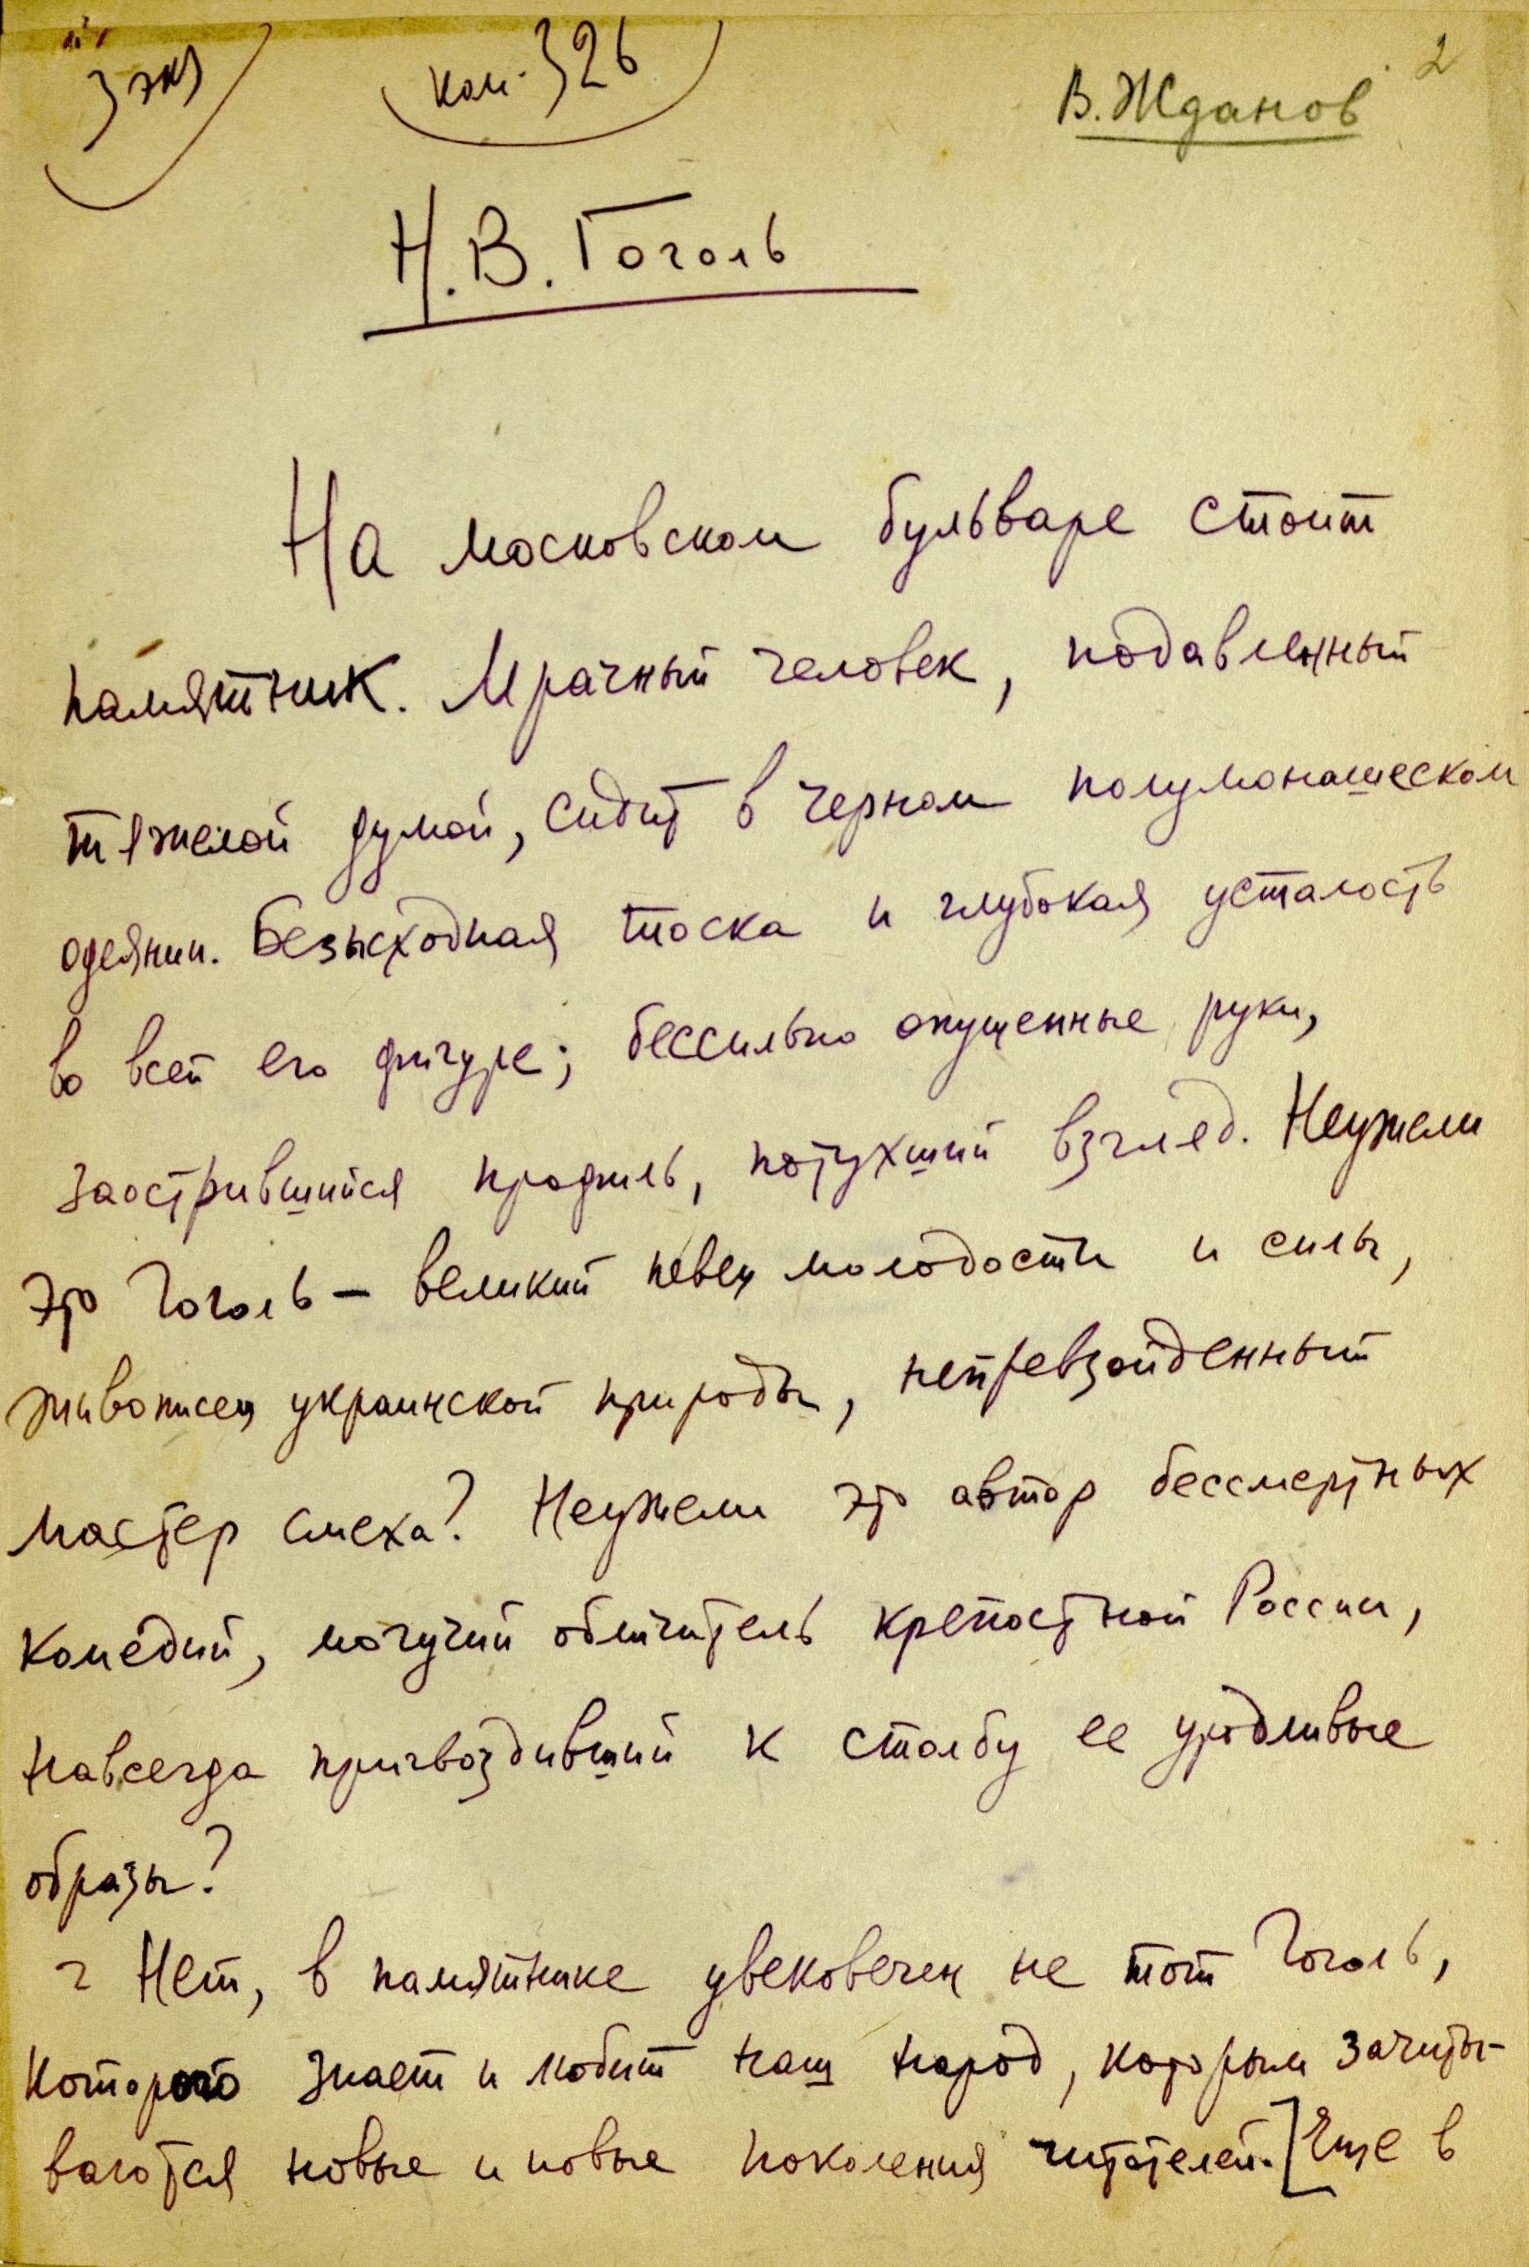 3 экз
ком. 326
В. Жданов
2
Н. В. Гоголь
На московском бульваре стоит
памятник. Мрачный человек, подавленный
тяжелой думой, сидит в черном полумонашеском
одеянии. Безысходная тоска и глубокая усталость
во всей его фигуре; бессильно опущенные руки,
заострившийся профиль, потухший взгляд. Неужели
это Гоголь – великий певец молодости и силы,
живописец украинской природы, непревзойденный
мастер смеха? Неужели это автор бессмертных
комедий, могучий обличитель крепостной России,
навсегда пригвоздивший к столбу ее уродливые
образы?
Нет, в памятнике увековечен не тот Гоголь,
которого знает и любит наш народ, которым зачиты-
ваются новые и новые поколения читателей.] Еще в